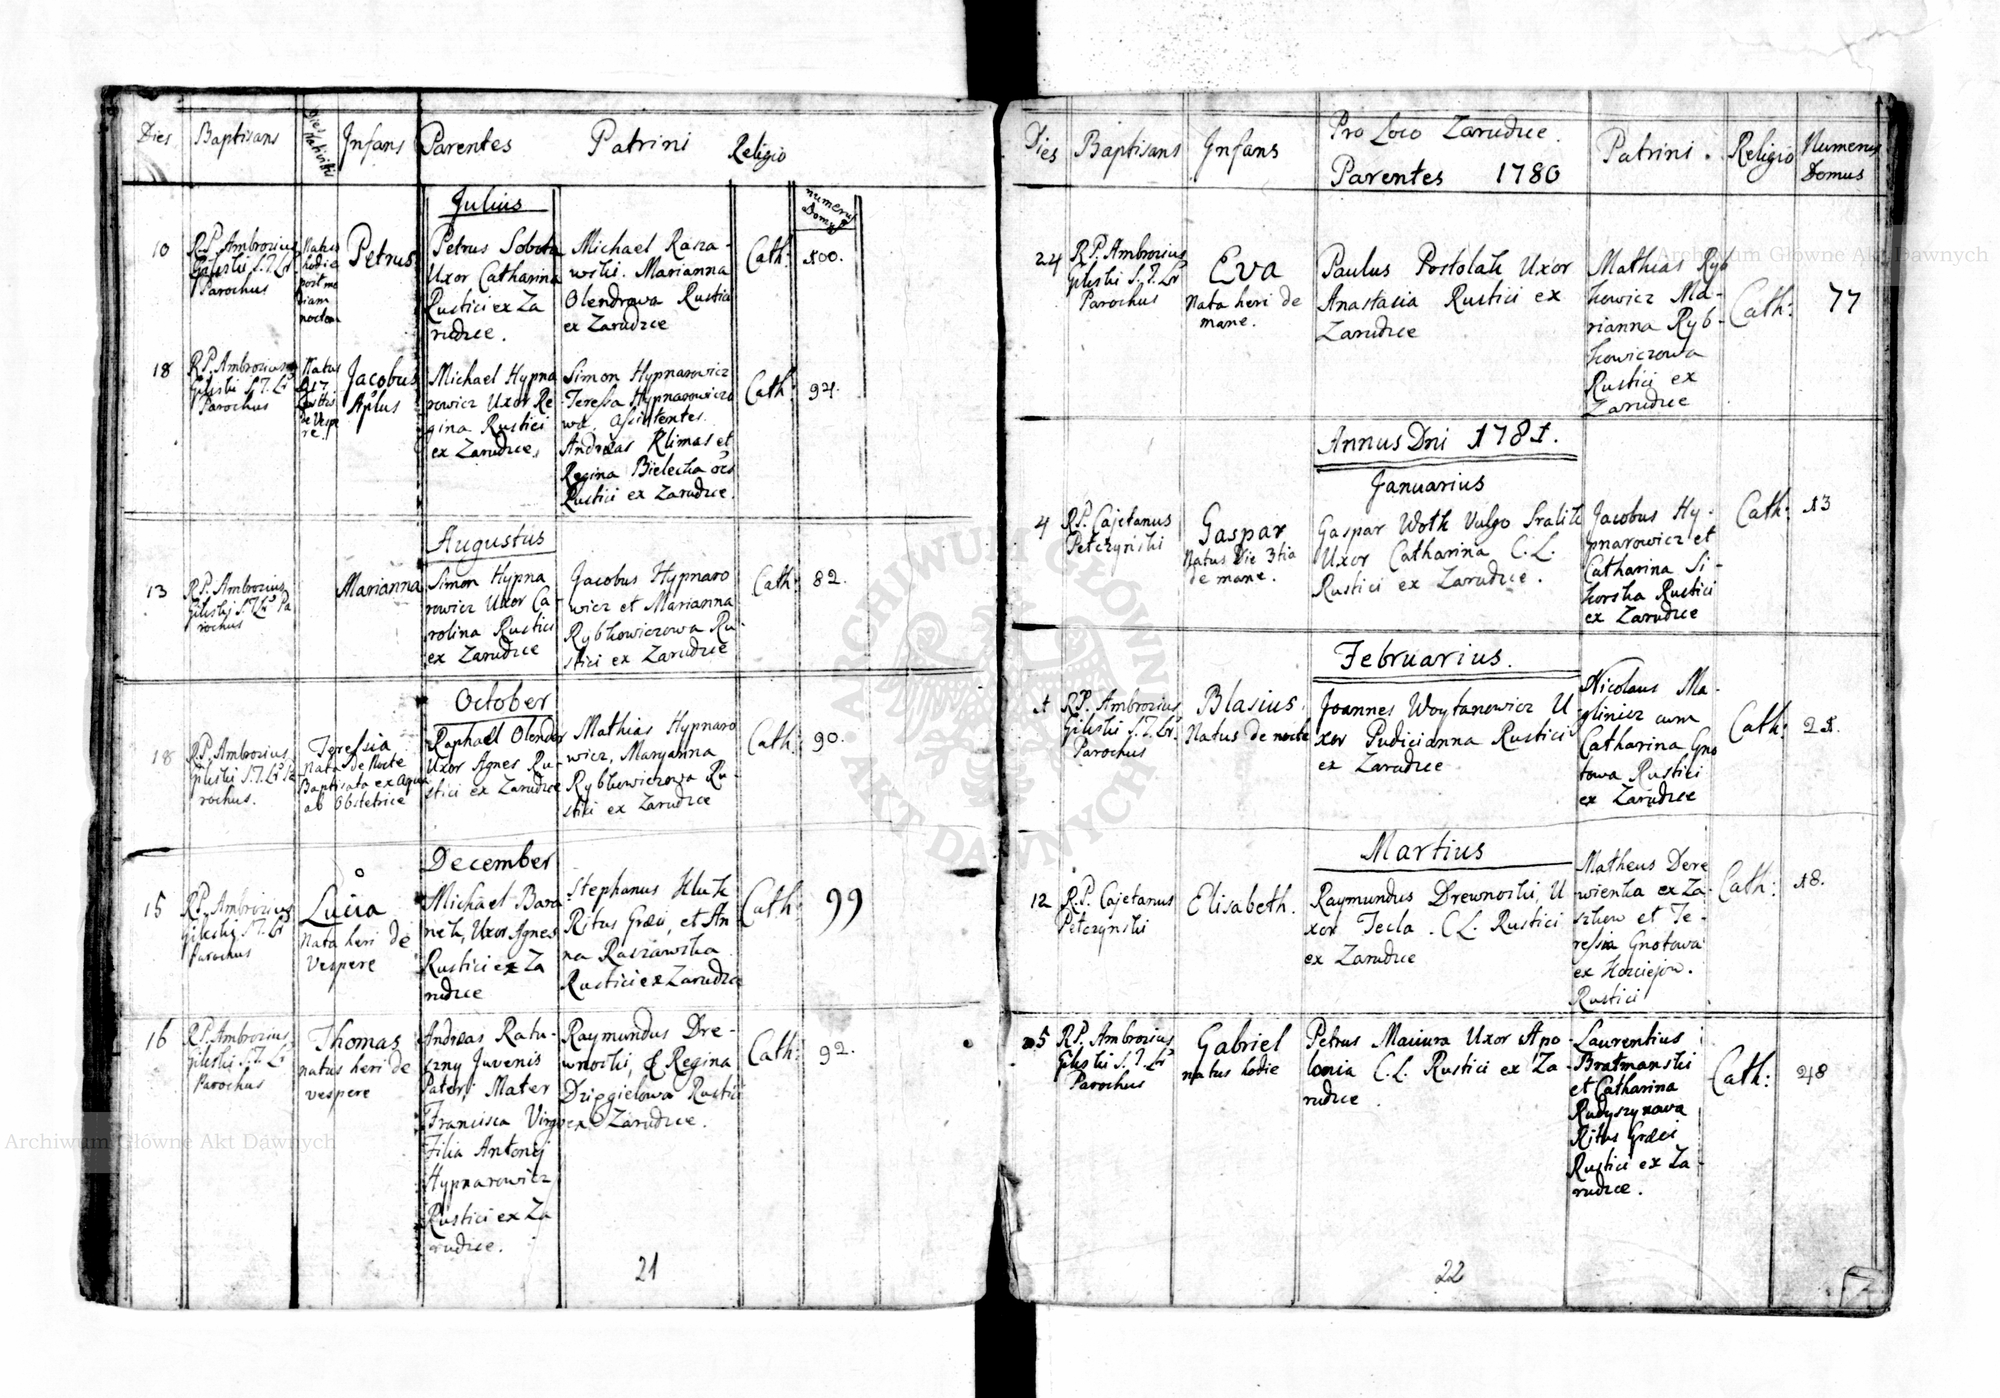 Dies Baptisans Dies Nativit: Infans Parentes Patrini Religio
numerus Domus
Julius
10
R.P. Ambrosius
Gilestii S.T. Lr
Parochus
Natus
hodie
post me
diam
noctem
Petrus
Petrus Sobota
Uxor Catharina
Rustici ex Za
rudzce.
Michael Rasza-
wski. Marianna
Olendrowa Rustici
ex Zarudzce
Cath:
100.
18
R.P. Ambrosius
Gilestii S.T. Lr
Parochus
Natus
d 17
de Vespe
re.
Jacobus
Aplus
Michael Hypna
rowicz Uxor Re
gina Rustici
ex Zarudzce,
Simon Hypnarowicz
Teressa Hypnarowiczo
wa. Assistentes.
Andreas Klimas et
Regina Bielecka
Rustici ex Zarudzce.
Cath:
94.
Augustus
13
R.P. Ambrosius
Gilestii S.T. Lr Pa
rochus
Marianna
Simon Hypna
rowicz Uxor Ca
rolina Rustici
ex Zarudzce
Jacobus Hypnaro
wicz et Marianna
Rybkowiczowa Ru-
stici ex Zarudzce
Cath:
82.
October
18
R.P. Ambrosius
Gilestii S.T. Lr Pa
rochus.
Teressia
Nata de Nocte
Baptisata ex Aqua
ab Obstetrice
Raphael Olender
Uxor Agnes Ru-
stici ex Zarudzce
Mathias Hypnaro
wicz, Maryanna
Rybkowiczowa Ru-
stici ex Zarudzce
Cath:
90.
December
15
R.P. Ambrosius
Gilestii S.T. Lr
Parochus
Lucia
Nata heri de
Vespere
Michael Bara
nek, Uxor Agnes
Rustici ex Za
rudzce
Stephanus Kluk
Ritus Græci, et An
na Raszawska
Rustici ex Zarudzce
Cath:
99
16
R.P. Ambrosius
Gilestii S.T. Lr
Parochus
Thomas
natus heri de
vespere
Andreas Ratu-
szny Juvenis
Pater, Mater
Francisca Virgo
Filia Antonij
Hypnarowicz
Rustici ex Za
rudzce.
Raymundus Dre-
wnoski, & Regina
Dzięgielowa Rustici
ex Zarudzce.
Cath:
92.
21
Dies Baptisans Infans
Pro Loco Zarudzce.
Parentes 1780
Patrini. Religio Numerus Domus
24
R.P. Ambrosius
Gilestii S.T. Lr
Parochus
Eva
Nata heri de
mane.
Paulus Postolak Uxor
Anastasia Rustici ex
Zarudzce
Mathias Ryb
kowicz Ma-
rianna Ryb-
kowiczowa
Rustici ex
Zarudzce
Cath:
77
Annus Dni 1781.
Januarius
4
R.P. Cajetanus
Pełczyński
Gaspar
Natus Die 3tia
de mane.
Gaspar Wotk Vulgo Sralik
Uxor Catharina C.L.
Rustici ex Zarudzce.
Jacobus Hy-
pnarowicz et
Catharina Si-
korska Rustici
ex Zarudzce
Cath:
13
Februarius.
1
R.P. Ambrosius
Gilestii S.T. Lr
Parochus
Blasius.
Natus de nocte
Joannes Woytanowicz U
xor Pudicianna Rustici
ex Zarudzce
Nicolaus Ma-
glinicz cum
Catharina Gno
towa Rustici
ex Zarudzce
Cath:
21.
Martius
12
R.P. Cajetanus
Pełczyński
Elisabeth.
Raymundus Drewnoski, U
xor Tecla. C.L. Rustici
ex Zarudzce
Matheus Dere
wienka ex Za-
szkow et Te-
ressia Gnotowa
ex Kozciejow.
Rustici
Cath:
18.
25
R.P. Ambrosius
Gilestii S.T. Lr
Parochus
Gabriel
natus hodie
Petrus Maciura Uxor Apo-
lonia C.L. Rustici ex Za-
rudzce.
Laurentius
Bratmanski
et Catharina
Rudyszynowa
Ritus Græci
Rustici ex Za-
rudzce.
Cath:
28
22
7
ARCHIWUM GŁÓWNE AKT DAWNYCH
Archiwum Główne Akt Dawnych
Archiwum Główne Akt Dawnych